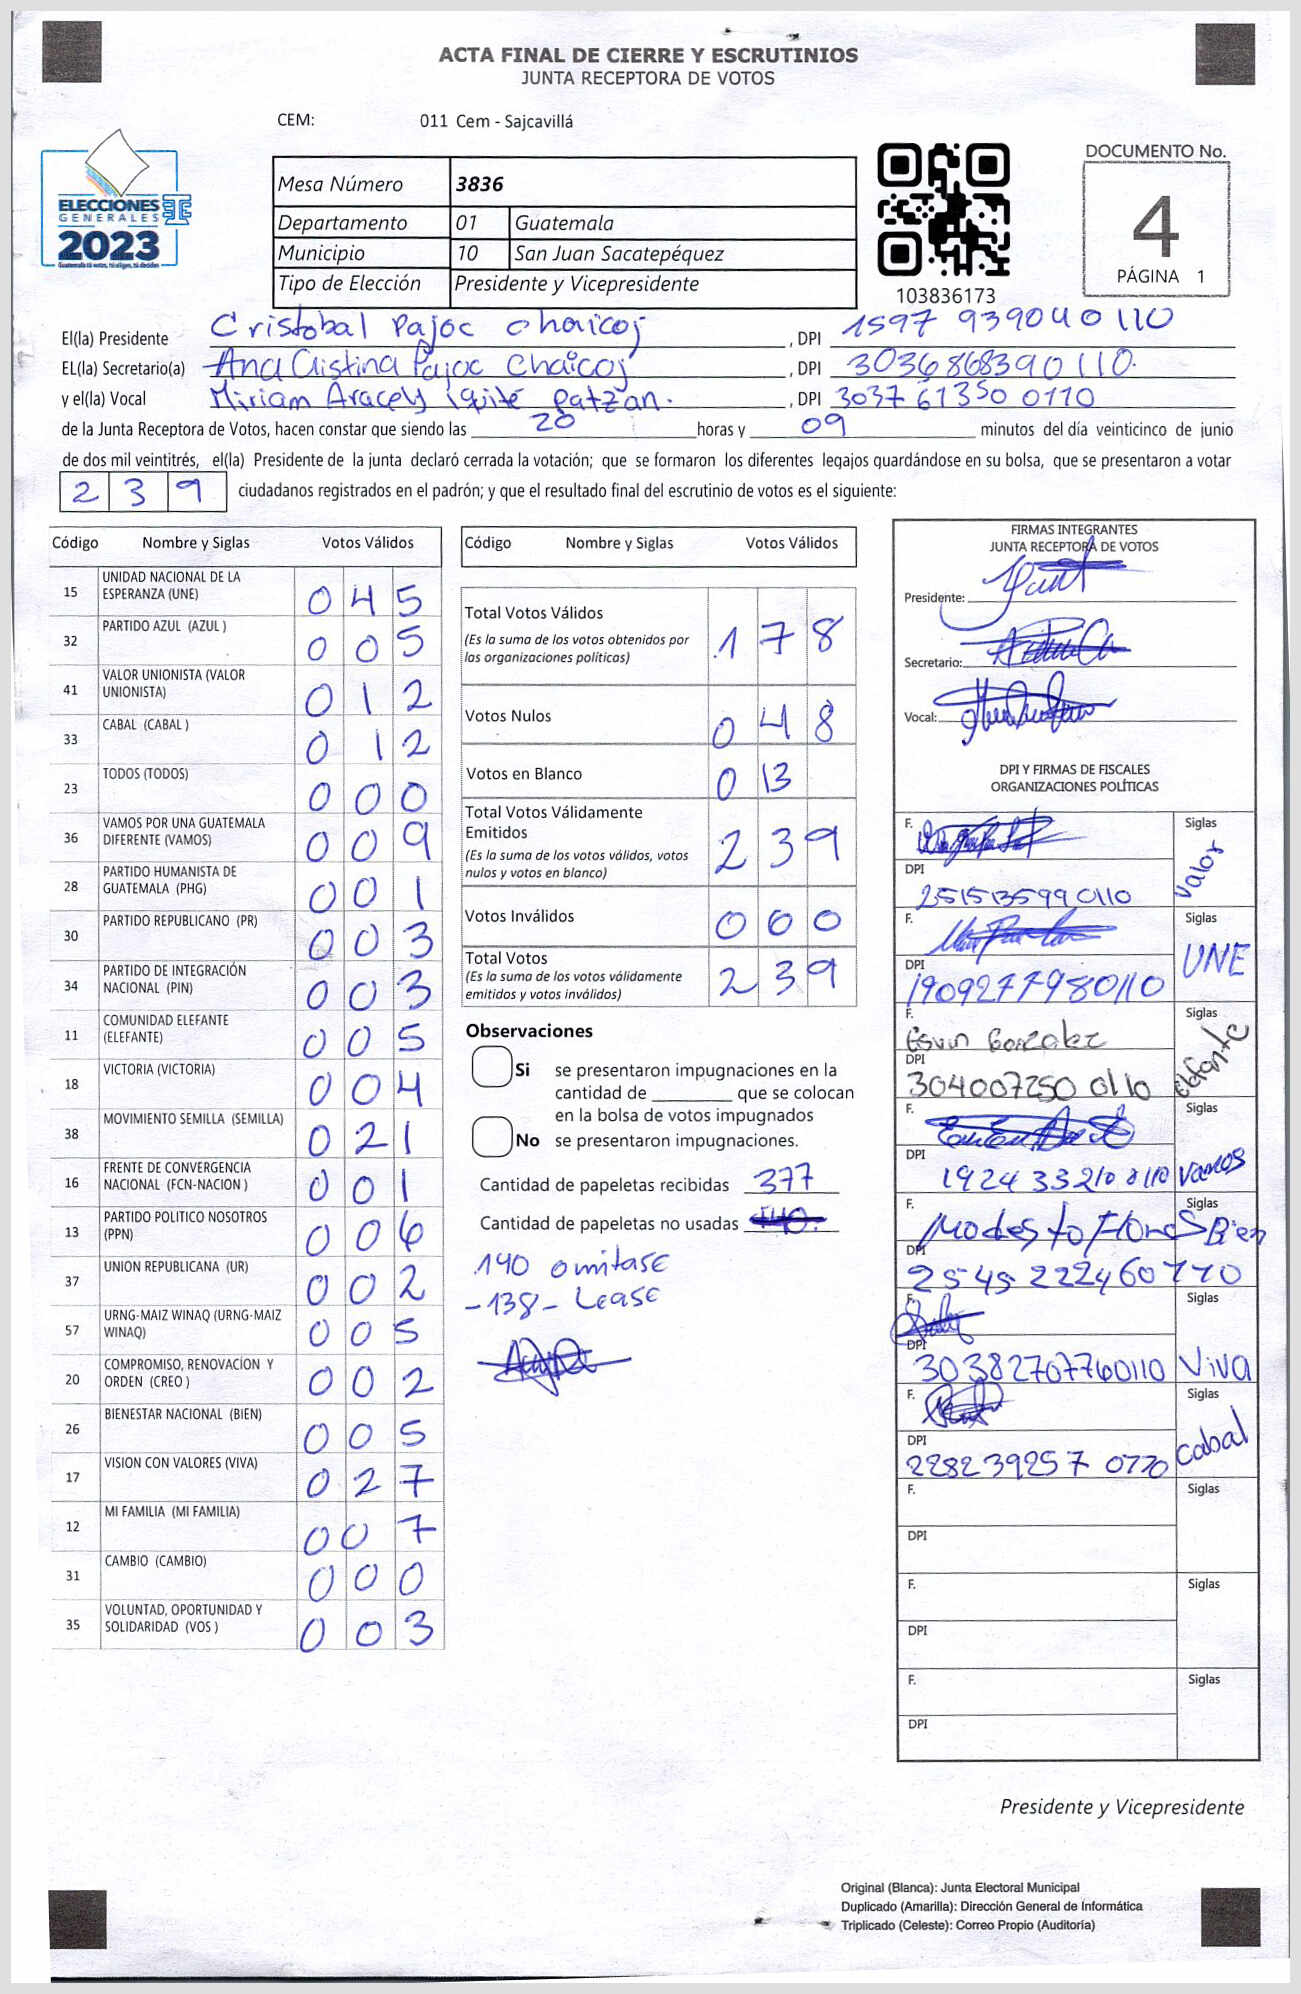 ACTA FINAL DE CIERRE Y ESCRUTINIOS
JUNTA RECEPTORA DE VOTOS
CEM: 011 Cem - Sajcavillá
ELECCIONES
GENERALES
2023
Mesa Número 3836
Departamento 01 Guatemala
Municipio 10 San Juan Sacatepéquez
Tipo de Elección Presidente y Vicepresidente
103836173
DOCUMENTO No.
4
PÁGINA 1
El(la) Presidente Cristobal Pajoc Chaicoj, DPI 1597 939040110
EL(la) Secretario(a) Ana Cristina Pajoc Chaicoj, DPI 3036868390110.
y el(la) Vocal Miriam Aracely iquité Patzán., DPI 3037 61350 0110
de la Junta Receptora de Votos, hacen constar que siendo las 20 horas y 09 minutos del día veinticinco de junio
de dos mil veintitrés, el(la) Presidente de la junta declaró cerrada la votación; que se formaron los diferentes legajos guardándose en su bolsa, que se presentaron a votar
2 3 9 ciudadanos registrados en el padrón; y que el resultado final del escrutinio de votos es el siguiente:
Código Nombre y Siglas Votos Válidos
15 UNIDAD NACIONAL DE LA ESPERANZA (UNE) 0 4 5
32 PARTIDO AZUL (AZUL ) 0 0 5
41 VALOR UNIONISTA (VALOR UNIONISTA) 0 1 2
33 CABAL (CABAL ) 0 1 2
23 TODOS (TODOS) 0 0 0
36 VAMOS POR UNA GUATEMALA DIFERENTE (VAMOS) 0 0 9
28 PARTIDO HUMANISTA DE GUATEMALA (PHG) 0 0 1
30 PARTIDO REPUBLICANO (PR) 0 0 3
34 PARTIDO DE INTEGRACIÓN NACIONAL (PIN) 0 0 3
11 COMUNIDAD ELEFANTE (ELEFANTE) 0 0 5
18 VICTORIA (VICTORIA) 0 0 4
38 MOVIMIENTO SEMILLA (SEMILLA) 0 2 1
16 FRENTE DE CONVERGENCIA NACIONAL (FCN-NACION ) 0 0 1
13 PARTIDO POLITICO NOSOTROS (PPN) 0 0 6
37 UNION REPUBLICANA (UR) 0 0 2
57 URNG-MAIZ WINAQ (URNG-MAIZ WINAQ) 0 0 5
20 COMPROMISO, RENOVACÍON Y ORDEN (CREO ) 0 0 2
26 BIENESTAR NACIONAL (BIEN) 0 0 5
17 VISION CON VALORES (VIVA) 0 2 7
12 MI FAMILIA (MI FAMILIA) 0 0 7
31 CAMBIO (CAMBIO) 0 0 0
35 VOLUNTAD, OPORTUNIDAD Y SOLIDARIDAD (VOS ) 0 0 3
Código Nombre y Siglas Votos Válidos
Total Votos Válidos 1 7 8
(Es la suma de los votos obtenidos por
las organizaciones políticas)
Votos Nulos 0 4 8
Votos en Blanco 0 13
Total Votos Válidamente
Emitidos 2 3 9
(Es la suma de los votos válidos, votos
nulos y votos en blanco)
Votos Inválidos 0 0 0
Total Votos 2 3 9
(Es la suma de los votos válidamente
emitidos y votos inválidos)
Observaciones
Si se presentaron impugnaciones en la
cantidad de ________ que se colocan
en la bolsa de votos impugnados
No se presentaron impugnaciones.
Cantidad de papeletas recibidas 377
Cantidad de papeletas no usadas 140.
140 omitase
-138- Lease
FIRMAS INTEGRANTES
JUNTA RECEPTORA DE VOTOS
Presidente:
Secretario:
Vocal:
DPI Y FIRMAS DE FISCALES
ORGANIZACIONES POLÍTICAS
F. Siglas Valor
DPI 2515135990110
F. Siglas UNE
DPI 1909277980110
F. Gonzalez Siglas Elefante
DPI 304007250 0110
F. Siglas Vamos
DPI 1924 33210 0110
F. Modesto Flores Siglas Bien
DPI 2545 222460110
F. Siglas Viva
DPI 3038270776 0110
F. Siglas Cabal
DPI 228239257 0110
F. Siglas
DPI
F. Siglas
DPI
F. Siglas
DPI
Presidente y Vicepresidente
Original (Blanca): Junta Electoral Municipal
Duplicado (Amarilla): Dirección General de Informática
Triplicado (Celeste): Correo Propio (Auditoría)